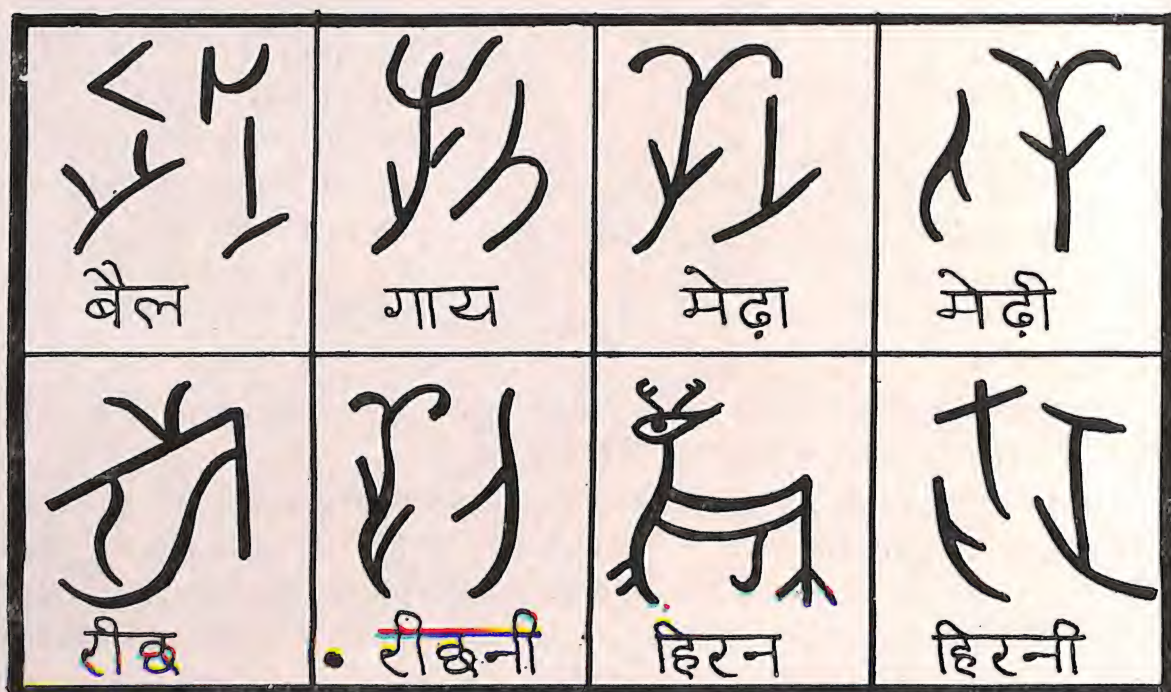 बैल गाय मेढ़ा मेढी
रीछ रीछनी हिरन हिरनी